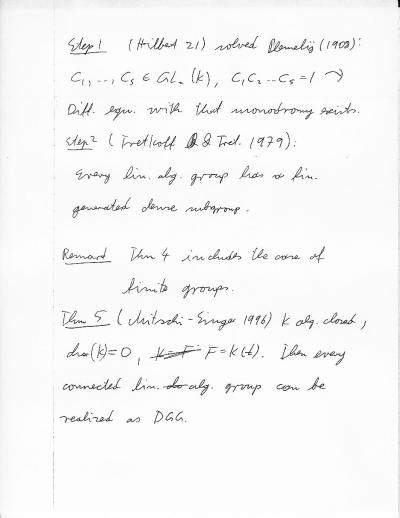 Step 1 (Hilbert 21) solved Plemelij (1908):
C₁, ..., Cₛ ∈ GLₙ(k), C₁C₂ ... Cₛ = 1 ⇝
Diff. equ. with that monodromy exists.
Step 2 (Tretkoff & Tret. 1979):
Every lin. alg. group has a fin.
generated dense subgroup.
Remark Thm 4 includes the case of
finite groups.
Thm 5 (Mitschi-Singer 1996) K alg. closed,
char(K)=0, F=K(t). Then every
connected lin. alg. group can be
realized as DGG.